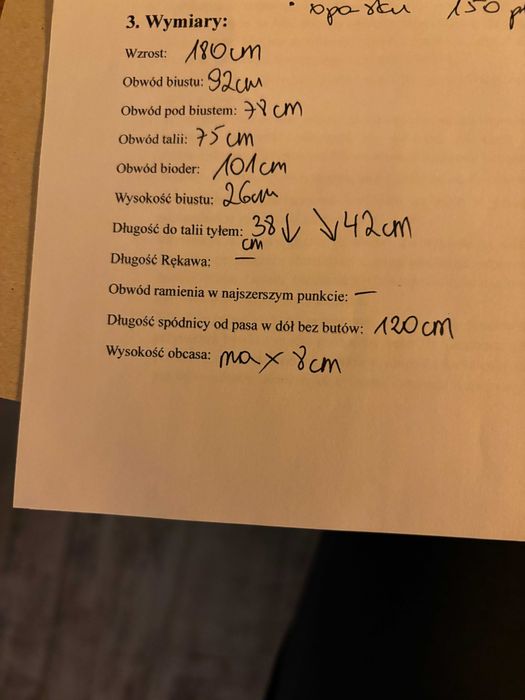 opasku 150
3. Wymiary:
Wzrost: 180cm
Obwód biustu: 92cm
Obwód pod biustem: 78cm
Obwód talii: 75cm
Obwód bioder: 101cm
Wysokość biustu: 26cm
Długość do talii tyłem: 38 cm ↓ ↘ 42cm
Długość Rękawa: —
Obwód ramienia w najszerszym punkcie: —
Długość spódnicy od pasa w dół bez butów: 120cm
Wysokość obcasa: max 8cm